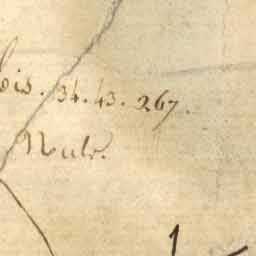 bis. 34. 43. 267.
Nulr.
1